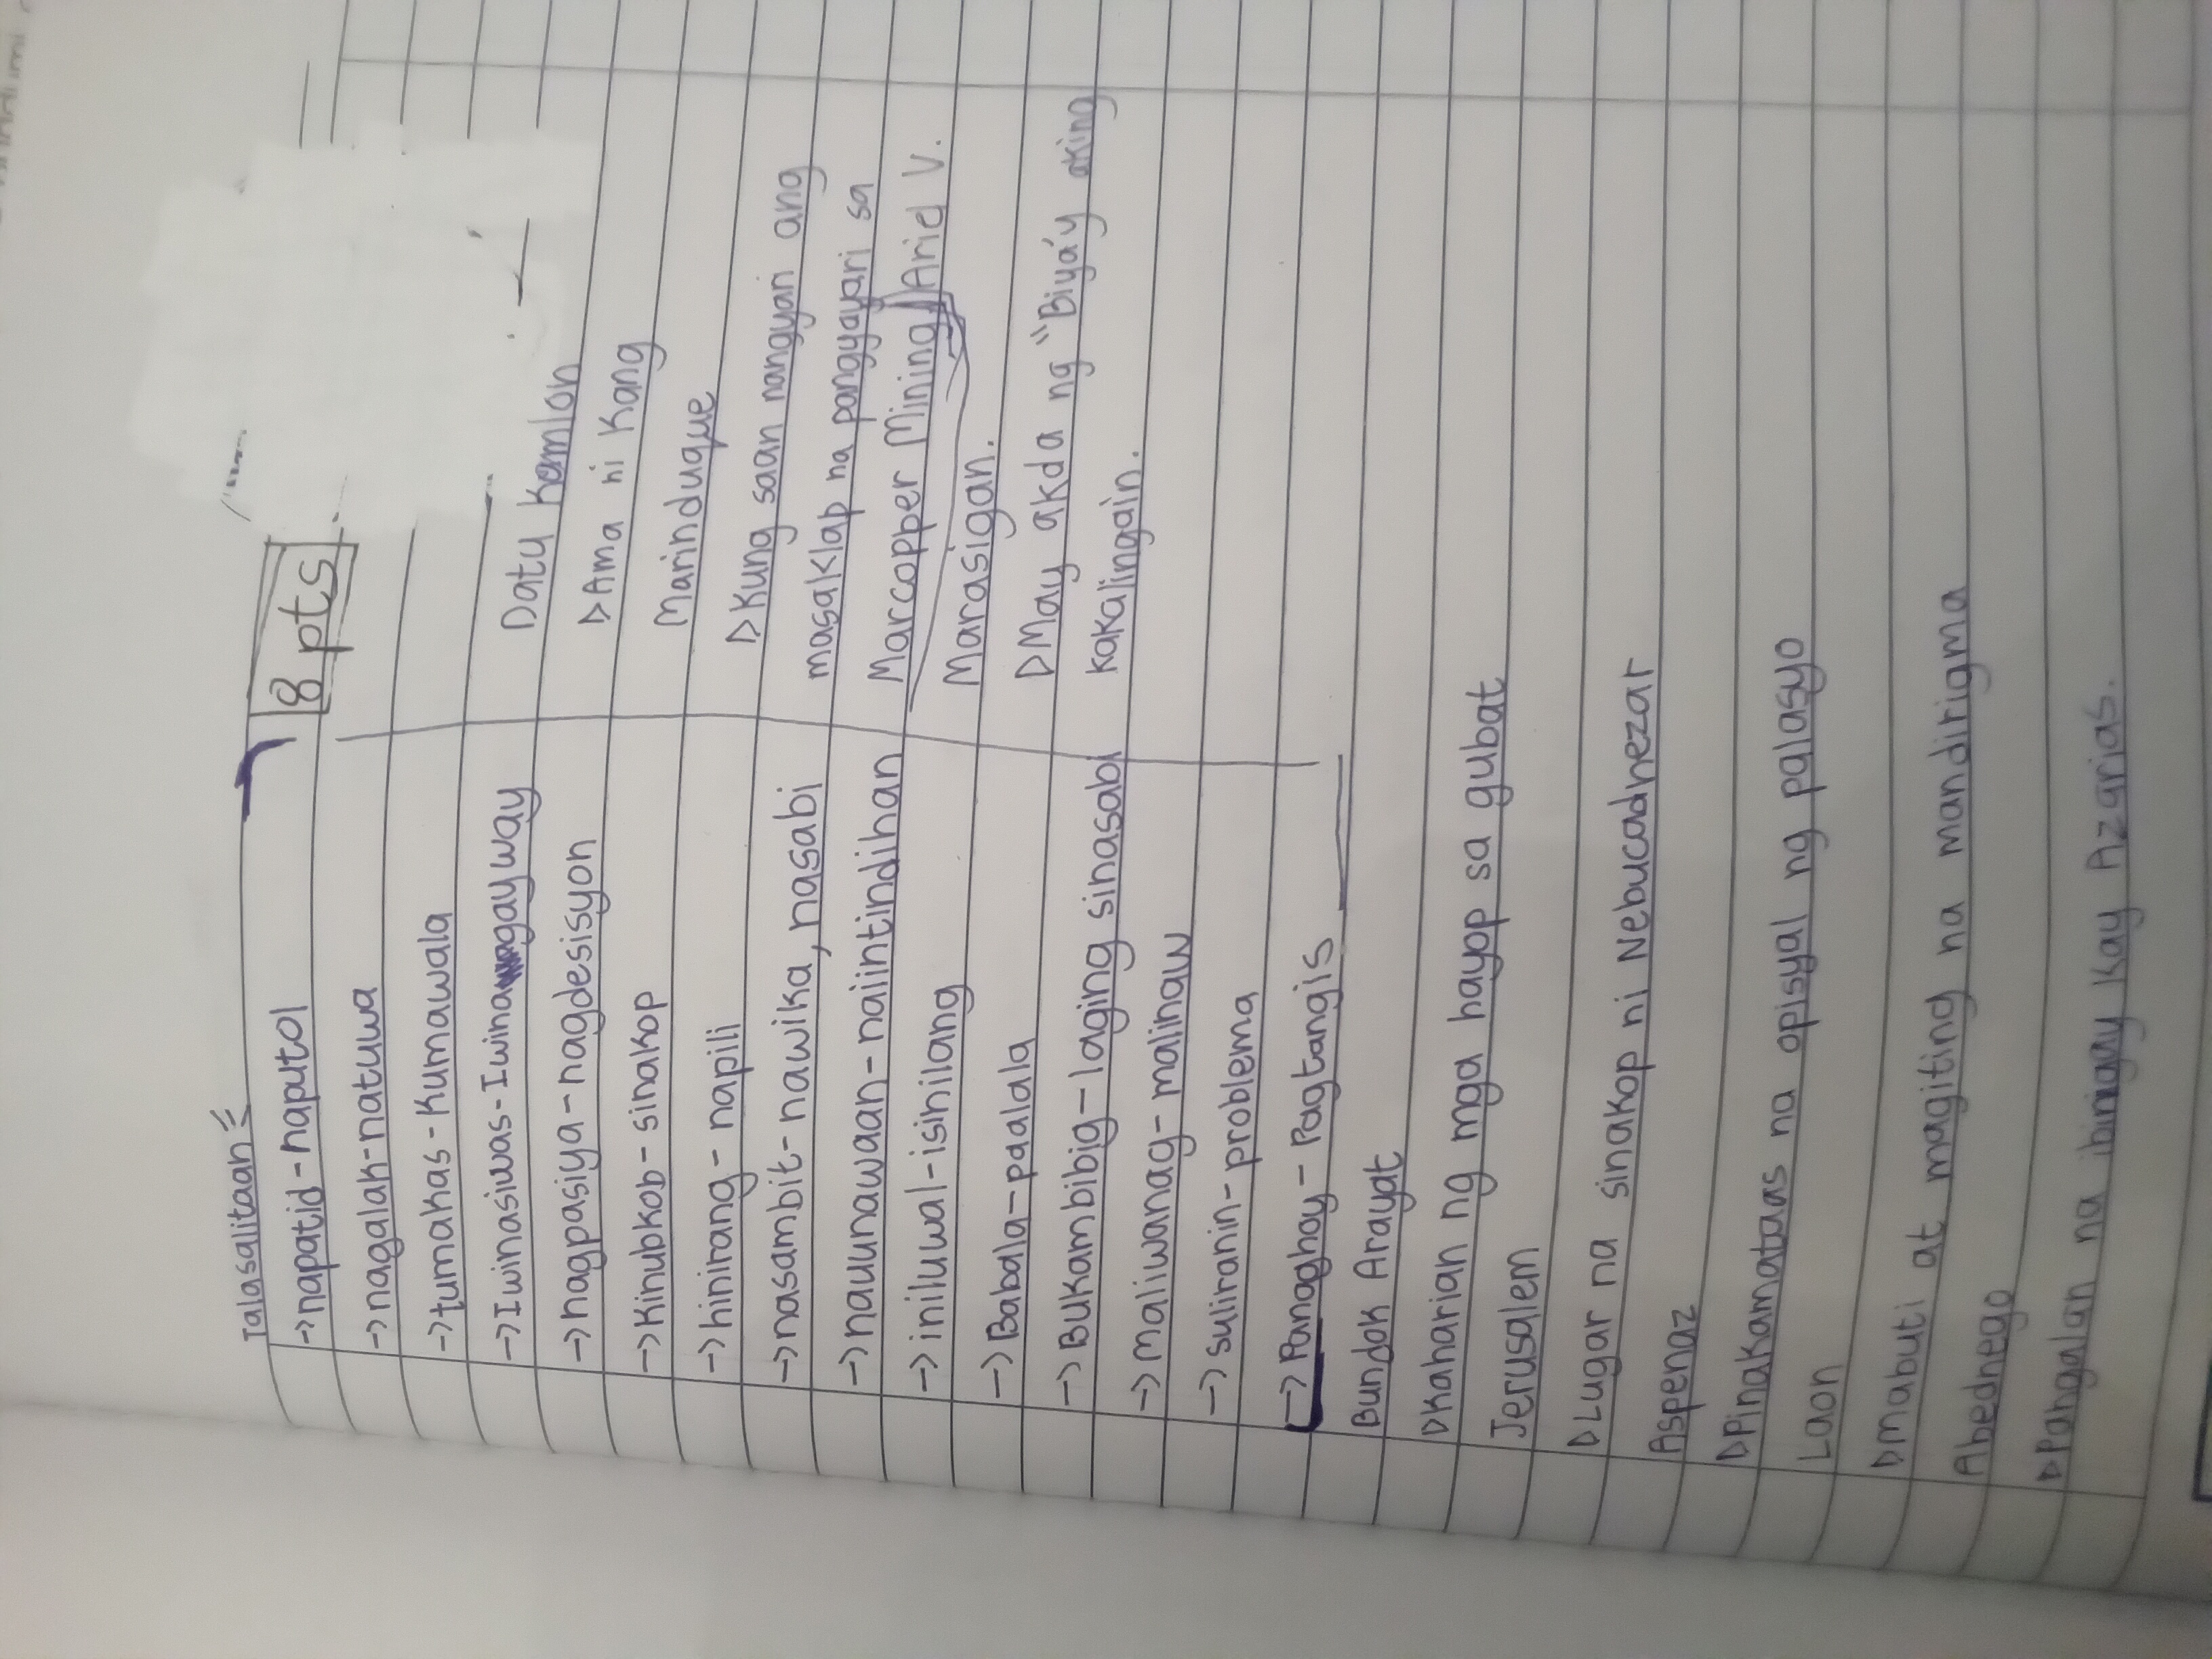 Talasalitaan:
8 pts
→napatid-naputol
→nagalak-natuwa
→tumakas-Kumawala
→Iwinasiwas-Iwinagayway
→nagpasiya-nagdesisyon
→Kinubkob-sinakop
→hinirang-napili
→nasambit-nawika, nasabi
→nauunawaan-naiintindihan
→iniluwal-isinilang
→Babala-paalala
→Bukambibig-laging sinasabi
→maliwanag-malinaw
→suliranin-problema
→Panaghoy-Pagtangis
Datu Kamlon
▷Ama ni Kang
Marinduque
▷Kung saan nangyari ang
masaklap na pangyayari sa
Marcopper Mining Ariel V.
Marasigan.
▷May akda ng "Biya'y aking
kakalingain.
Bundok Arayat
▷Kaharian ng mga hayop sa gubat
Jerusalem
▷Lugar na sinakop ni Nebucadnezar
Aspenaz
▷Pinakamataas na opisyal ng palasyo
Laon
▷Mabuti at magiting na mandirigma
Abednego
▷Pangalan na ibinigay Kay Azarias.